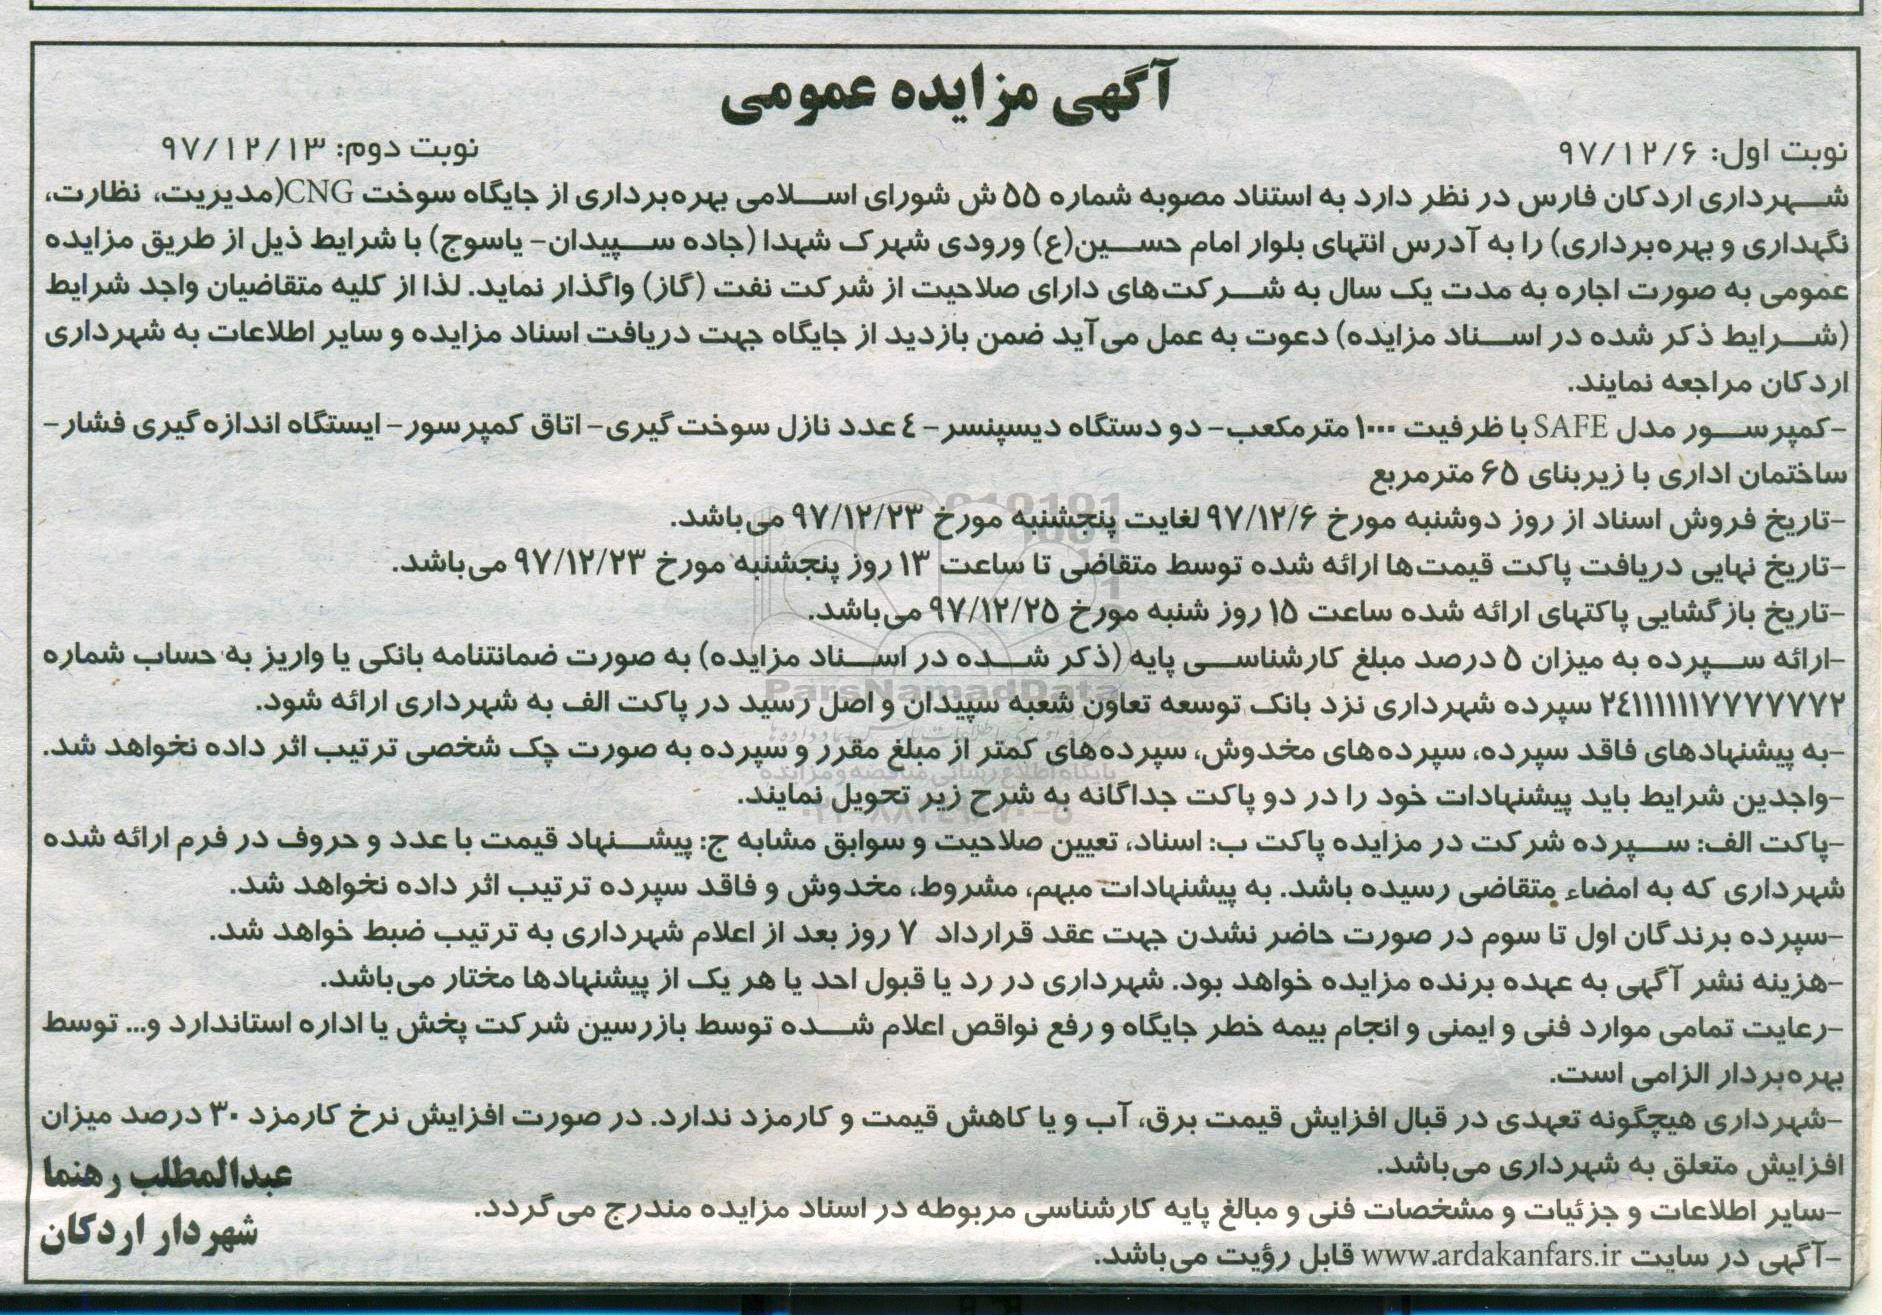 آگهی مزایده عمومی
نوبت اول: ۹۷/۱۲/۶
نوبت دوم: ۹۷/۱۲/۱۳
شهرداری اردکان فارس در نظر دارد به استناد مصوبه شماره ۵۵ ش شورای اسلامی بهره‌برداری از جایگاه سوخت CNG(مدیریت، نظارت،
نگهداری و بهره‌برداری) را به آدرس انتهای بلوار امام حسین(ع) ورودی شهرک شهدا (جاده سپیدان- یاسوج) با شرایط ذیل از طریق مزایده
عمومی به صورت اجاره به مدت یک سال به شرکت‌های دارای صلاحیت از شرکت نفت (گاز) واگذار نماید. لذا از کلیه متقاضیان واجد شرایط
(شرایط ذکر شده در اسناد مزایده) دعوت به عمل می‌آید ضمن بازدید از جایگاه جهت دریافت اسناد مزایده و سایر اطلاعات به شهرداری
اردکان مراجعه نمایند.
-کمپرسور مدل SAFE با ظرفیت ۱۰۰۰ مترمکعب- دو دستگاه دیسپنسر- ۴ عدد نازل سوخت‌گیری- اتاق کمپرسور- ایستگاه اندازه‌گیری فشار-
ساختمان اداری با زیربنای ۶۵ مترمربع
-تاریخ فروش اسناد از روز دوشنبه مورخ ۹۷/۱۲/۶ لغایت پنجشنبه مورخ ۹۷/۱۲/۲۳ می‌باشد.
-تاریخ نهایی دریافت پاکت قیمت‌ها ارائه شده توسط متقاضی تا ساعت ۱۳ روز پنجشنبه مورخ ۹۷/۱۲/۲۳ می‌باشد.
-تاریخ بازگشایی پاکتهای ارائه شده ساعت ۱۵ روز شنبه مورخ ۹۷/۱۲/۲۵ می‌باشد.
-ارائه سپرده به میزان ۵ درصد مبلغ کارشناسی پایه (ذکر شده در اسناد مزایده) به صورت ضمانتنامه بانکی یا واریز به حساب شماره
۲۴۱۱۱۱۱۱۷۷۷۷۷۷۷۲ سپرده شهرداری نزد بانک توسعه تعاون شعبه سپیدان و اصل رسید در پاکت الف به شهرداری ارائه شود.
-به پیشنهادهای فاقد سپرده، سپرده‌های مخدوش، سپرده‌های کمتر از مبلغ مقرر و سپرده به صورت چک شخصی ترتیب اثر داده نخواهد شد.
-واجدین شرایط باید پیشنهادات خود را در دو پاکت جداگانه به شرح زیر تحویل نمایند.
-پاکت الف: سپرده شرکت در مزایده پاکت ب: اسناد، تعیین صلاحیت و سوابق مشابه ج: پیشنهاد قیمت با عدد و حروف در فرم ارائه شده
شهرداری که به امضاء متقاضی رسیده باشد. به پیشنهادات مبهم، مشروط، مخدوش و فاقد سپرده ترتیب اثر داده نخواهد شد.
-سپرده برندگان اول تا سوم در صورت حاضر نشدن جهت عقد قرارداد ۷ روز بعد از اعلام شهرداری به ترتیب ضبط خواهد شد.
-هزینه نشر آگهی به عهده برنده مزایده خواهد بود. شهرداری در رد یا قبول احد یا هر یک از پیشنهادها مختار می‌باشد.
-رعایت تمامی موارد فنی و ایمنی و انجام بیمه خطر جایگاه و رفع نواقص اعلام شده توسط بازرسین شرکت پخش یا اداره استاندارد و... توسط
بهره‌بردار الزامی است.
-شهرداری هیچگونه تعهدی در قبال افزایش قیمت برق، آب و یا کاهش قیمت و کارمزد ندارد. در صورت افزایش نرخ کارمزد ۳۰ درصد میزان
افزایش متعلق به شهرداری می‌باشد.
-سایر اطلاعات و جزئیات و مشخصات فنی و مبالغ پایه کارشناسی مربوطه در اسناد مزایده مندرج می‌گردد.
-آگهی در سایت www.ardakanfars.ir قابل رؤیت می‌باشد.
عبدالمطلب رهنما
شهردار اردکان
ParsNamadData
پایگاه اطلاع رسانی مناقصه و مزایده